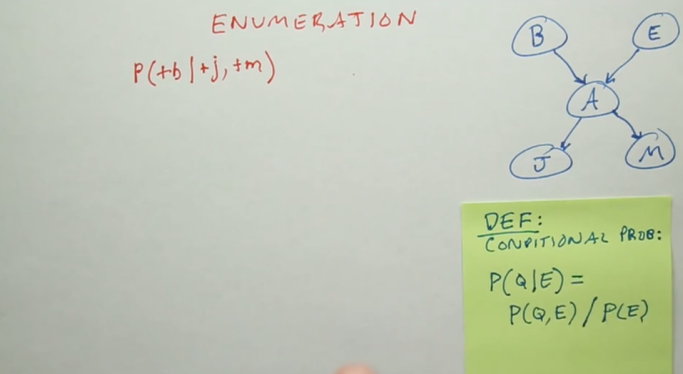 ENUMERATION
P(+b|+j,+m)
B
E
A
J
M
DEF:
CONDITIONAL PROB:
P(Q|E) =
P(Q,E) / P(E)